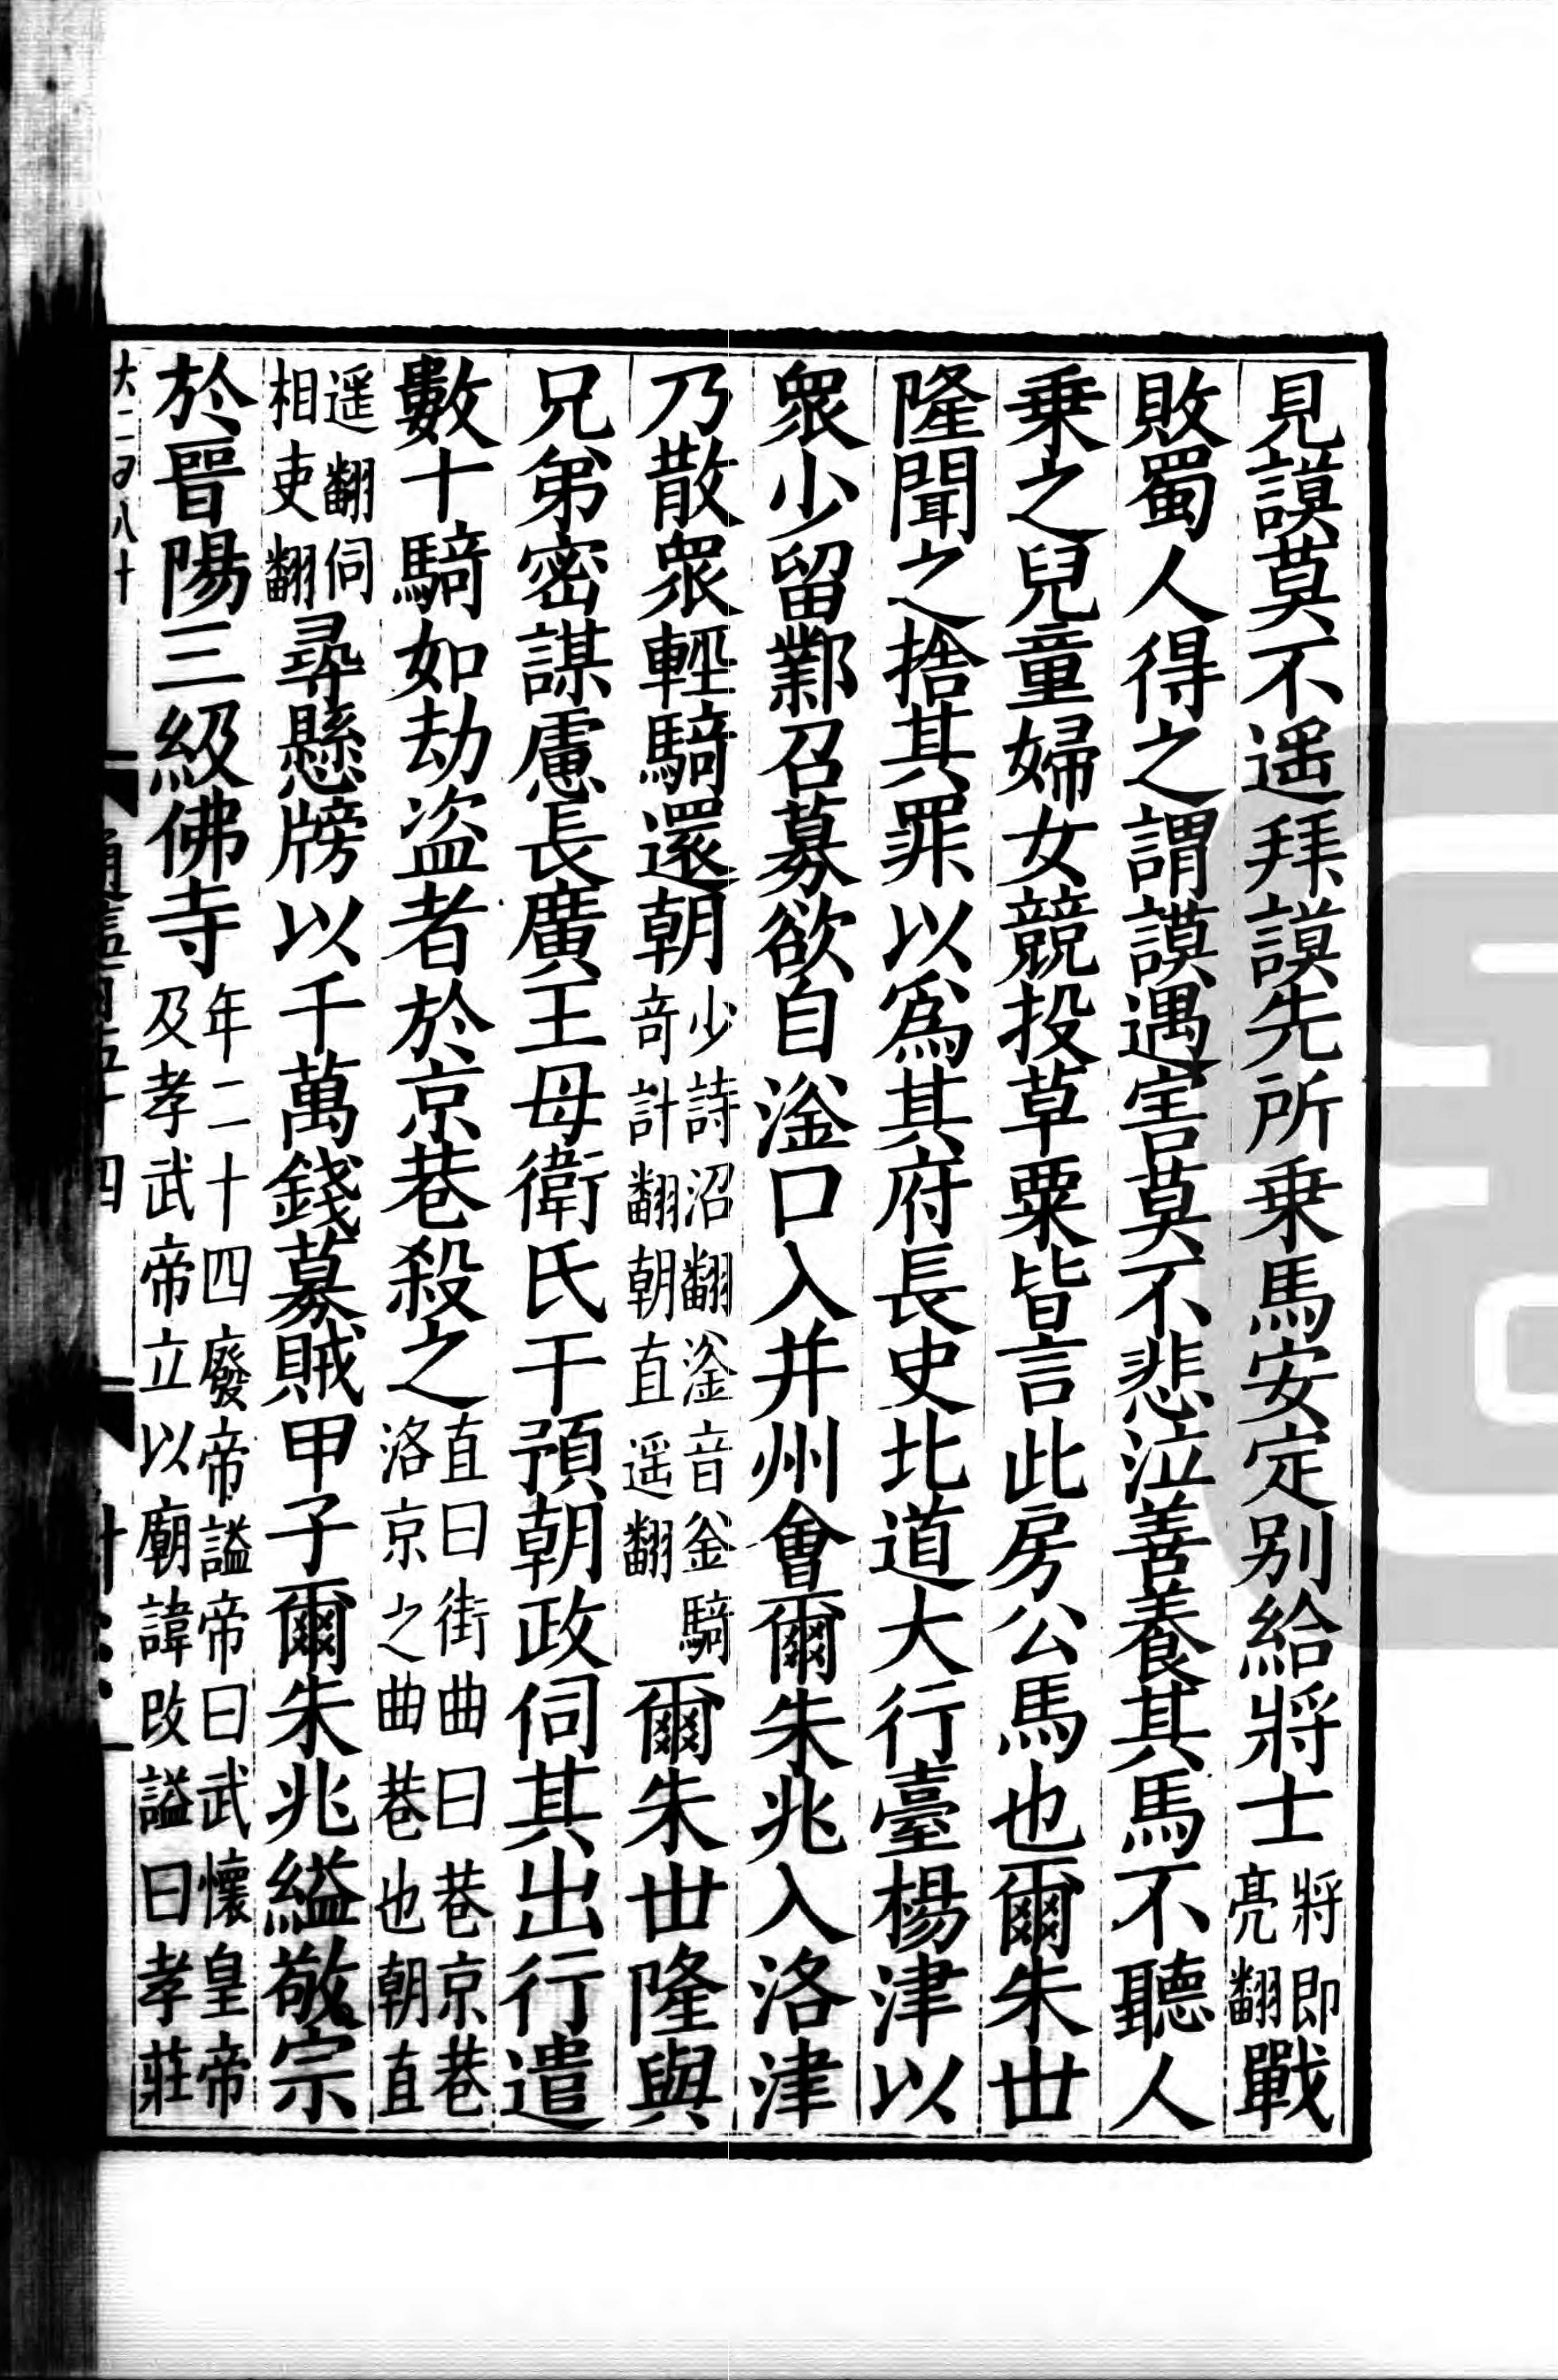 見謨莫不遥拜謨先所乗馬安定别給將士將即亮翻戰
敗蜀人得之謂謨遇害莫不悲泣善養其馬不聽人
乗之兒童婦女競投草粟皆言此房公馬也爾朱世
隆聞之捨其罪以爲其府長史北道大行臺楊津以
衆少留鄴召募欲自滏口入并州會爾朱兆入洛津
乃散衆輕騎還朝少詩沼翻滏音釡騎奇計翻朝直遥翻爾朱世隆與
兄弟密謀慮長廣王母衛氏干預朝政伺其出行遣
數十騎如劫盜者於京巷殺之直曰街曲曰巷京巷洛京之曲巷也朝直
遥翻伺相吏翻尋懸牓以千萬錢募賊甲子爾朱兆縊敬宗
於晉陽三級佛寺年二十四廢帝謚帝曰武懷皇帝及孝武帝立以廟諱改謚曰孝莊